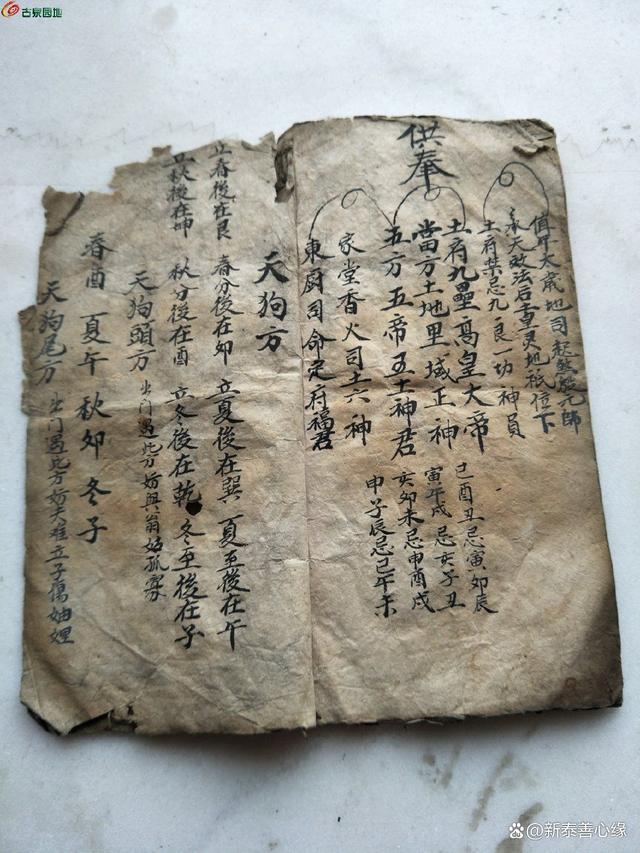 古泉园地
供奉
值年太歲地司起煞殷元帥
奉天敕法后土重灵地祇位下
土府禁忌九良一切神員
土府九壘高皇大帝
當方土地里域正神
五方五帝五土神君
家堂香火司土六神
東厨司命定府福君
巳酉丑忌寅卯辰
寅午戌忌亥子丑
亥卯未忌申酉戌
申子辰忌巳午未
天狗方
立春後在艮 春分後在卯 立夏後在巽 夏至後在午
立秋後在坤 秋分後在酉 立冬後在乾 冬至後在子
天狗頭方 出门遇此方妨與翁姑孤寡
春酉 夏午 秋卯 冬子
天狗尾方 出门遇此方妨夫难立子傷妯娌
百家号@新泰善心缘